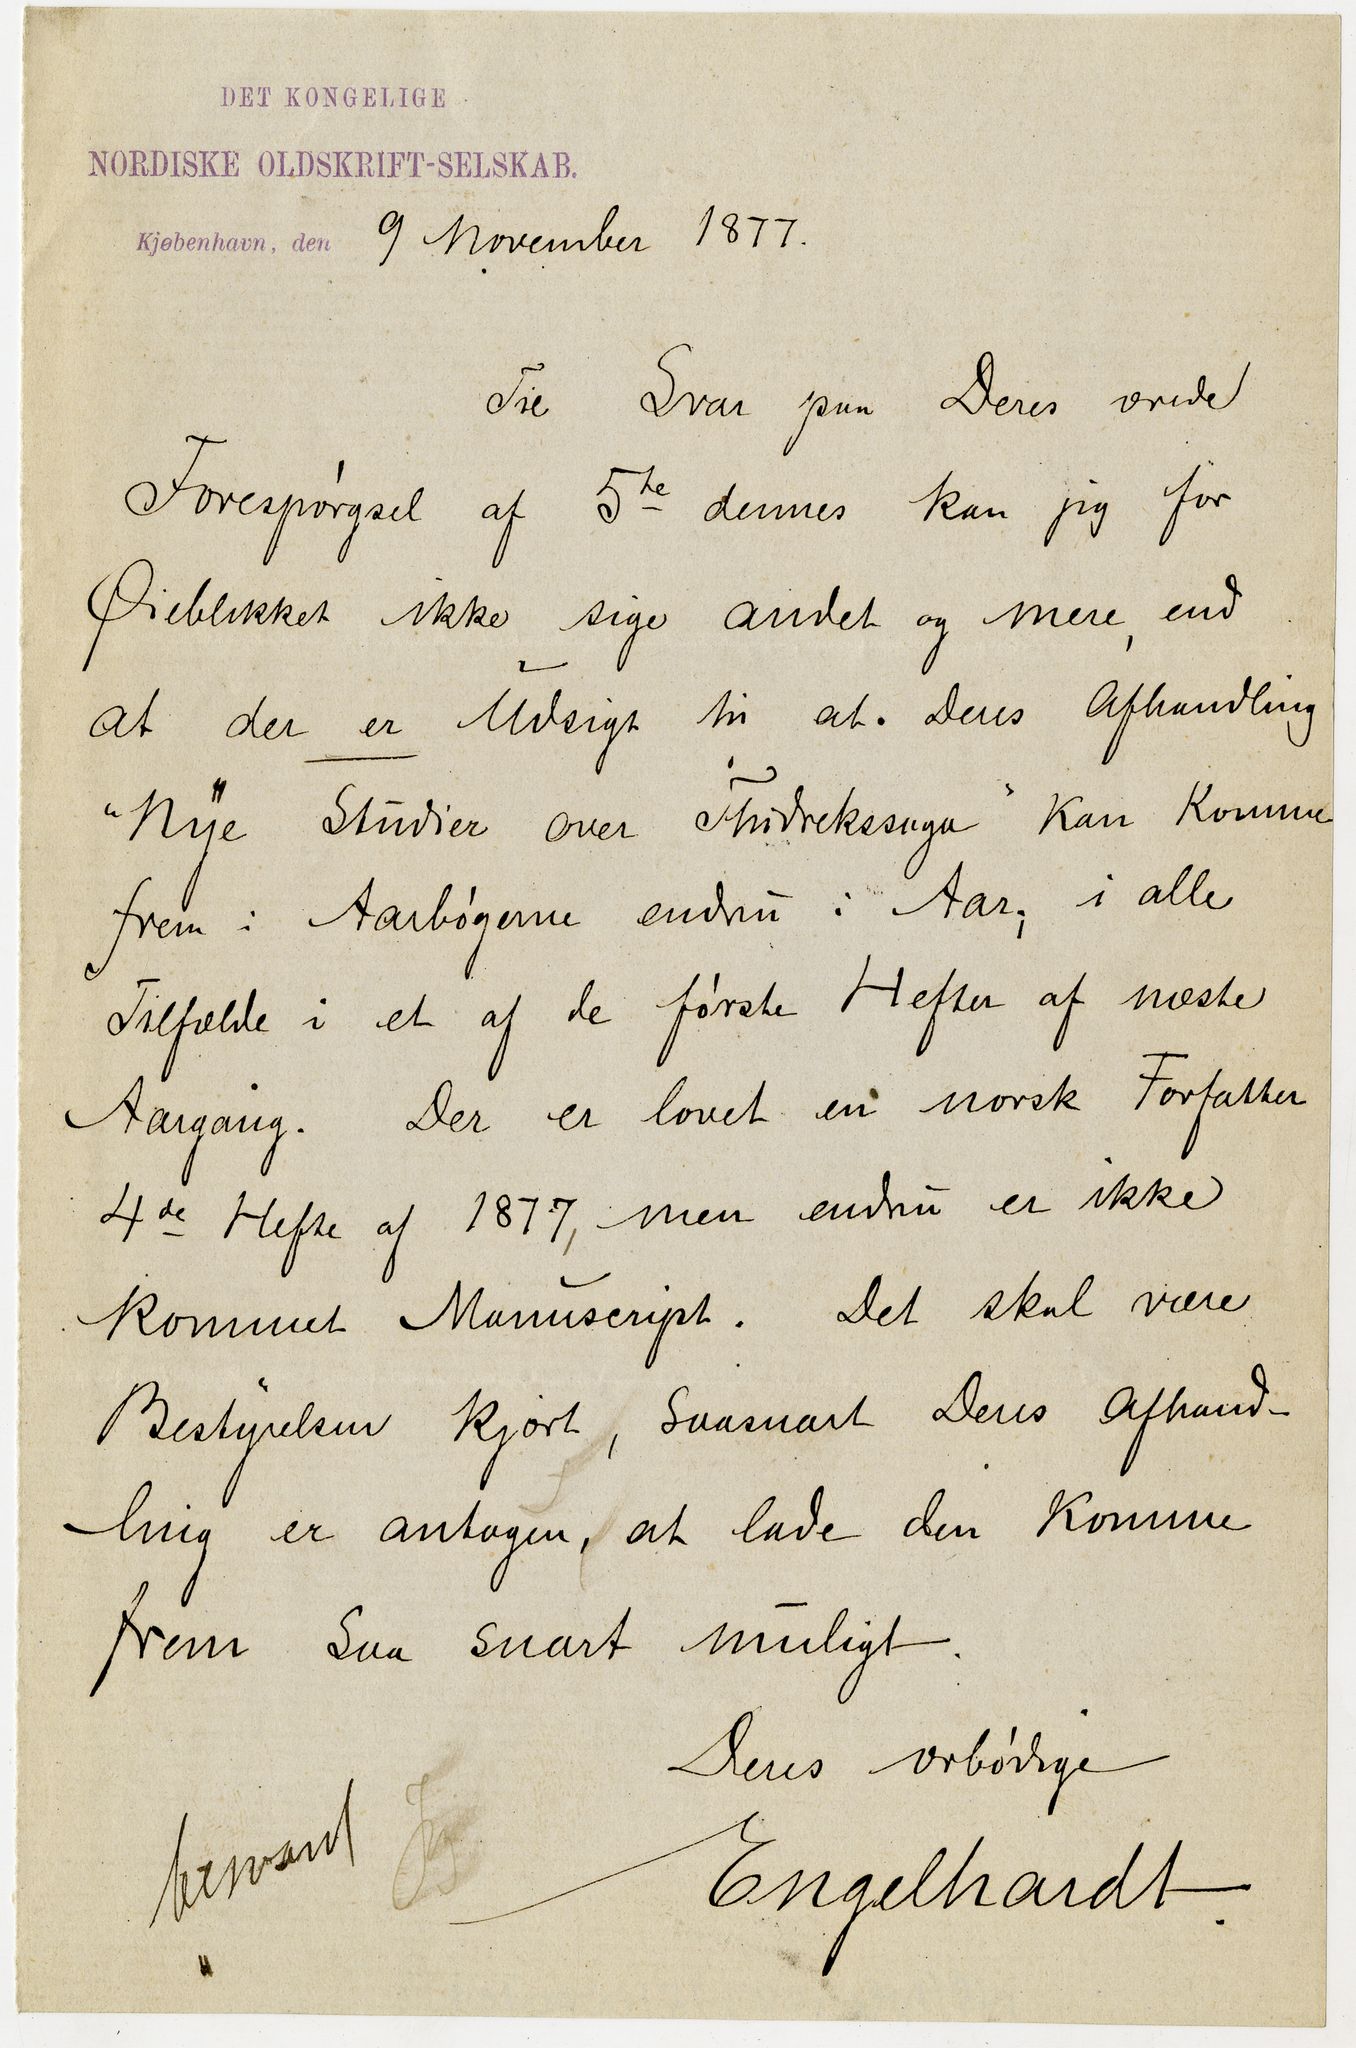 DET KONGELIGE
NORDISKE OLDSKRIFT-SELSKAB.
Kjøbenhavn, den 9 November 1877.
Til Svar paa Deres ærede
Forespørgsel af 5te dennes kan jeg for
Øieblikket ikke sige andet og mere, end
at der er Udsigt til at Deres Afhandling
"Nye Studier over Thidrekssaga" kan komme
frem i Aarbøgerne endnu i Aar; i alle
Tilfælde i et af de første Hefter af næste
Aargang. Der er lovet en norsk Forfatter
4de Hefte af 1877, men endnu er ikke
kommet Manuscript. Det skal være
Bestyrelsen kjært, saasnart Deres Afhand-
ling er antagen, at lade den komme
frem saa snart muligt.
Deres ærbødige
Engelhardt.